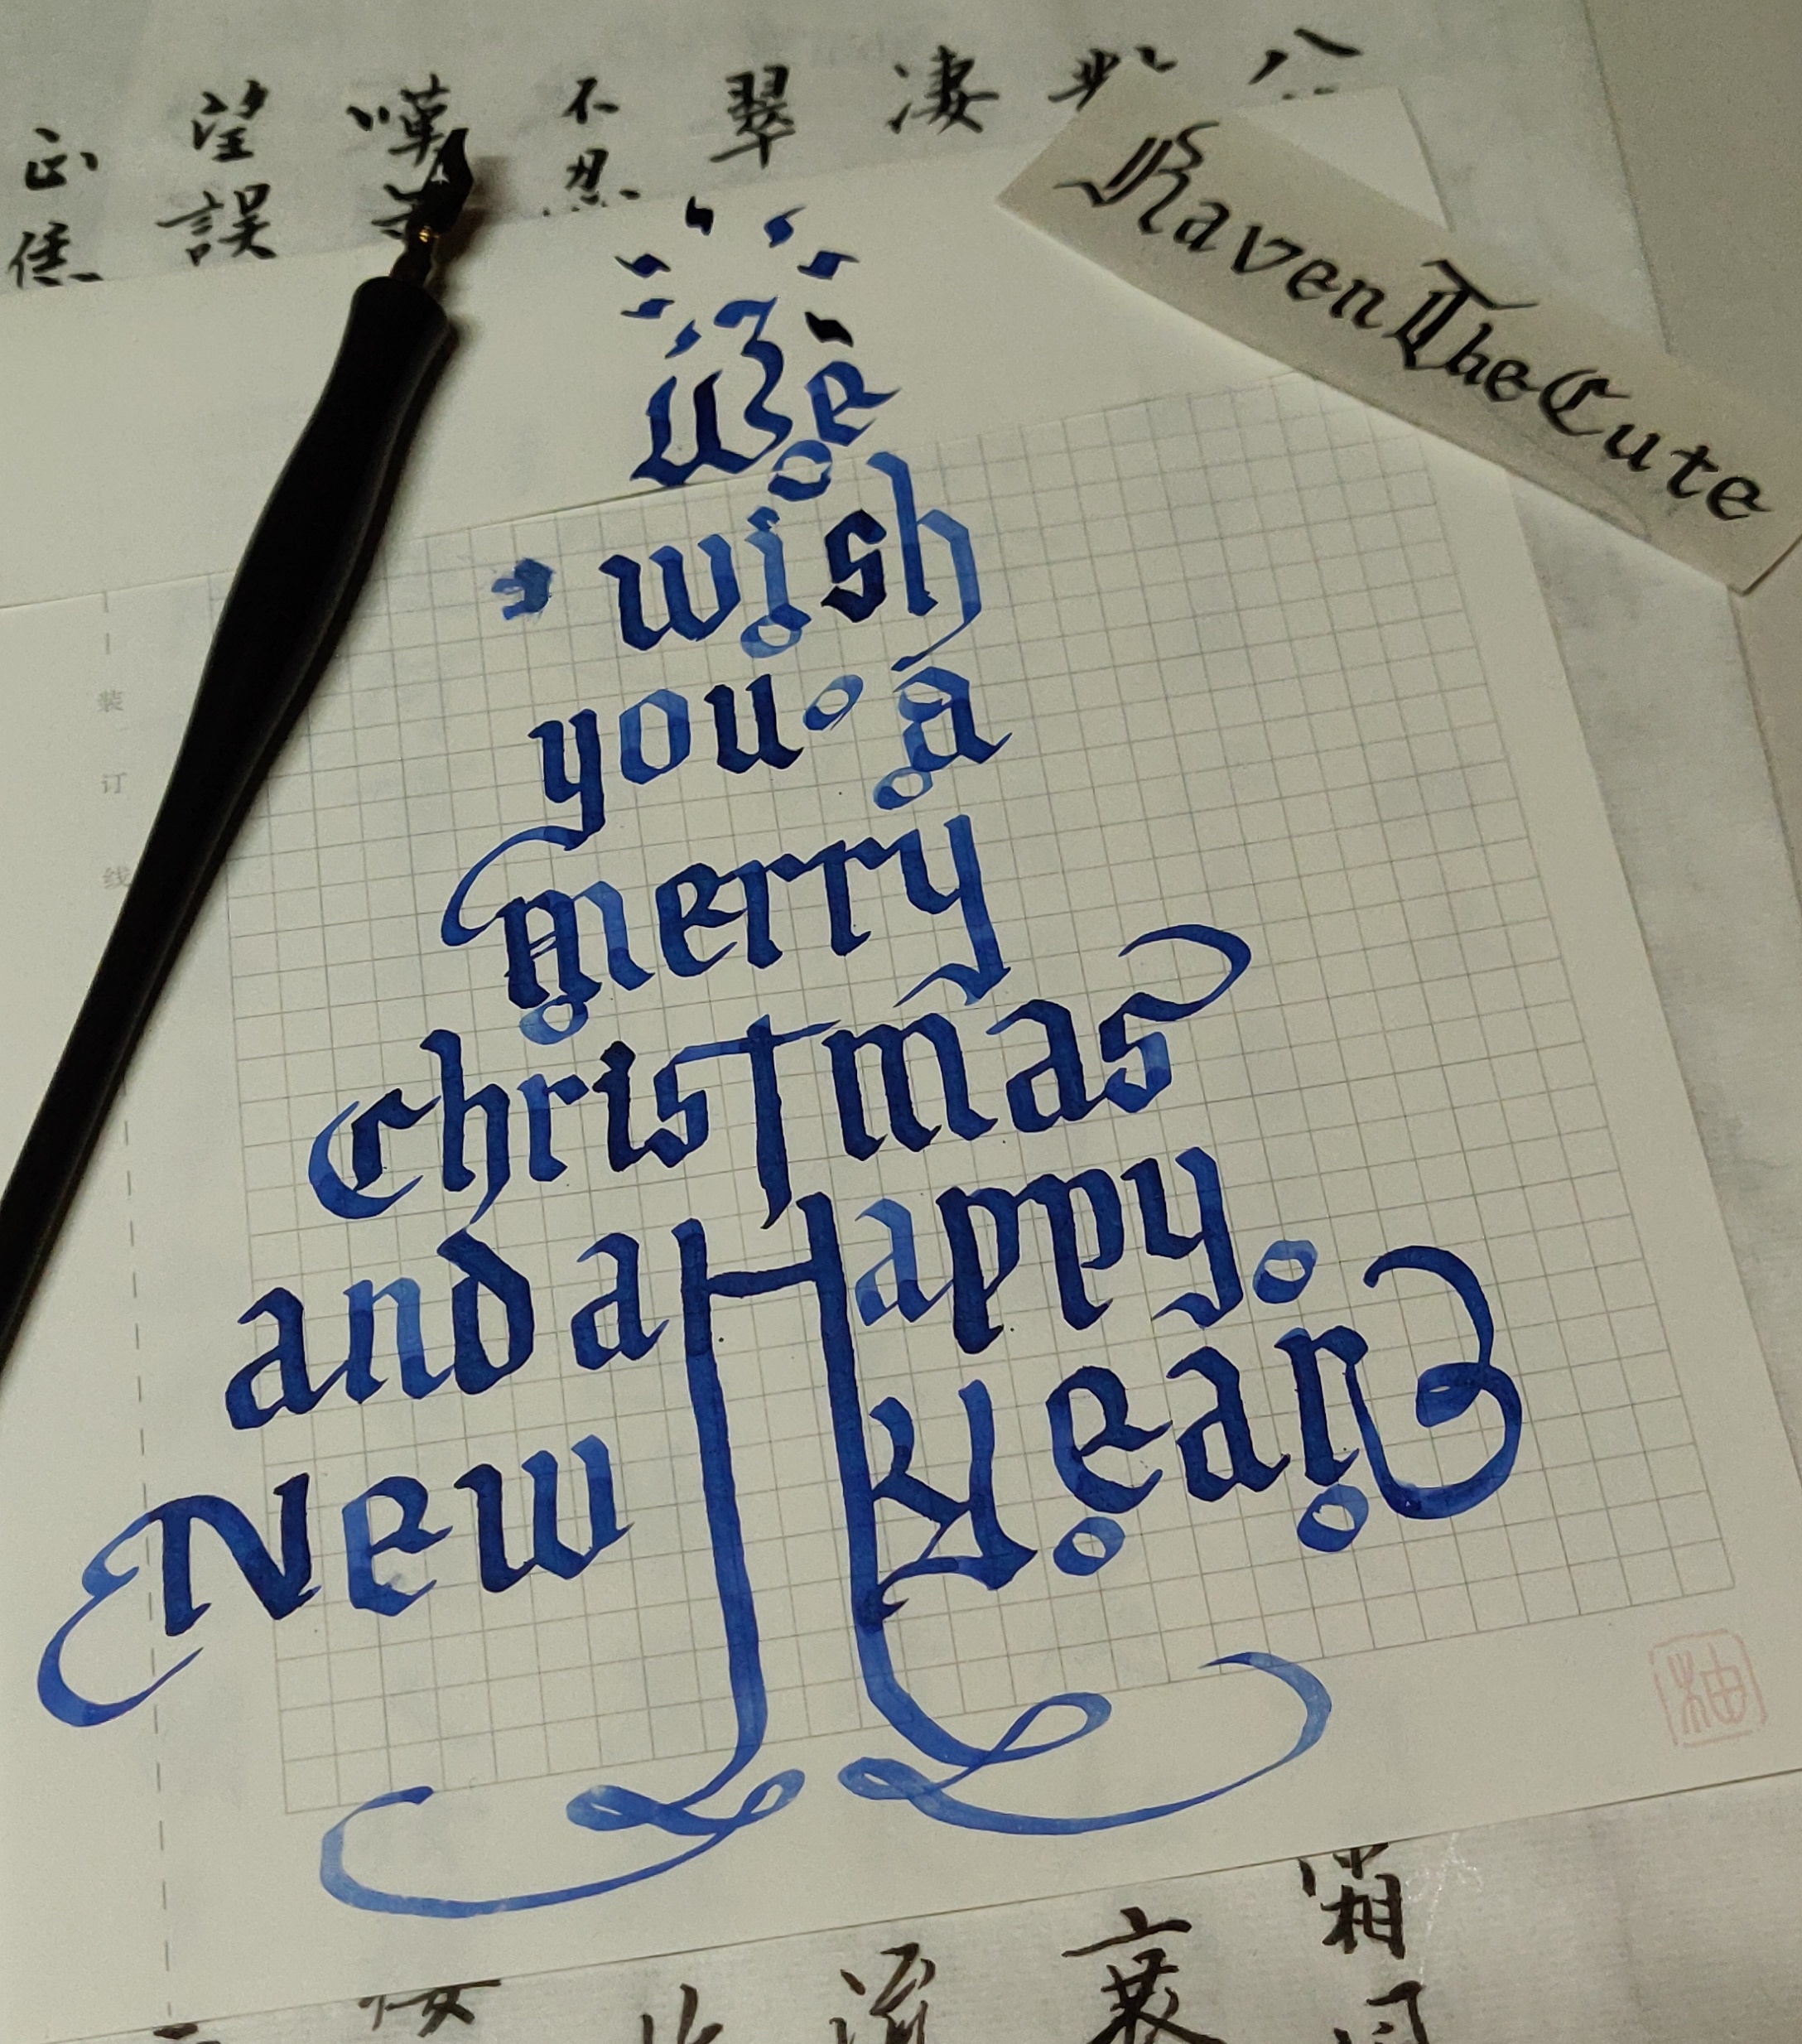 翠
不忍
嘆
望誤
正
RavenTheCute
We
wish
you a
merry
christmas
and a Happy
New Year
装
订
线
柚
霜
衰
流